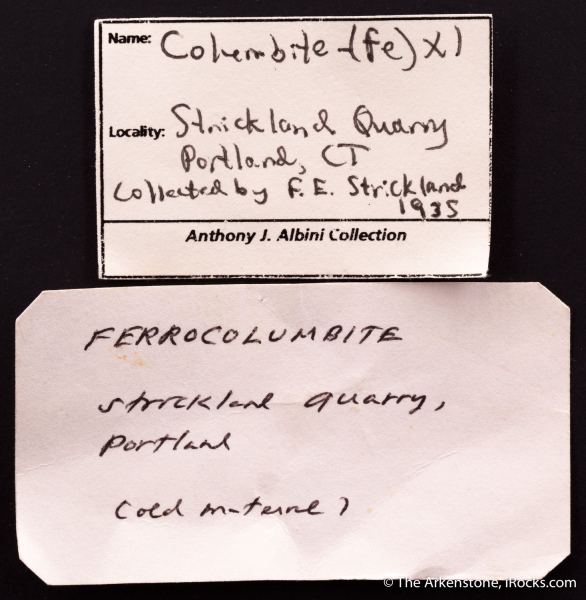 Name: Columbite-(Fe) Xl
Locality: Strickland Quarry
Portland, CT
Collected by F. E. Strickland
1935
Anthony J. Albini Collection
FERROCOLUMBITE
Strickland quarry,
Portland
(old material)
© The Arkenstone, iRocks.com